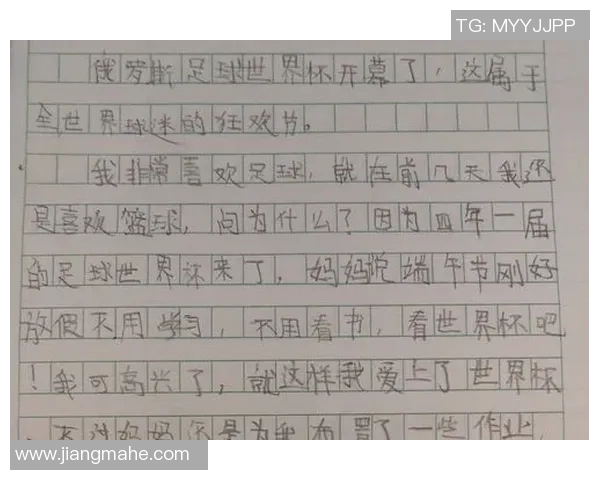 TG: MYYJJPP
俄罗斯足球世界杯开幕了，这属于
全世界球迷的狂欢节。
我非常喜欢足球，就在前几天我还
是喜欢篮球，问为什么？因为四年一届
的足球世界杯来了，妈妈说端午节刚好
放假不用学习，不用看书，看世界杯吧
！我可高兴了，就这样我爱上了世界杯
，不过妈妈还是为我布置了一些作业，
www.jiangmahe.com